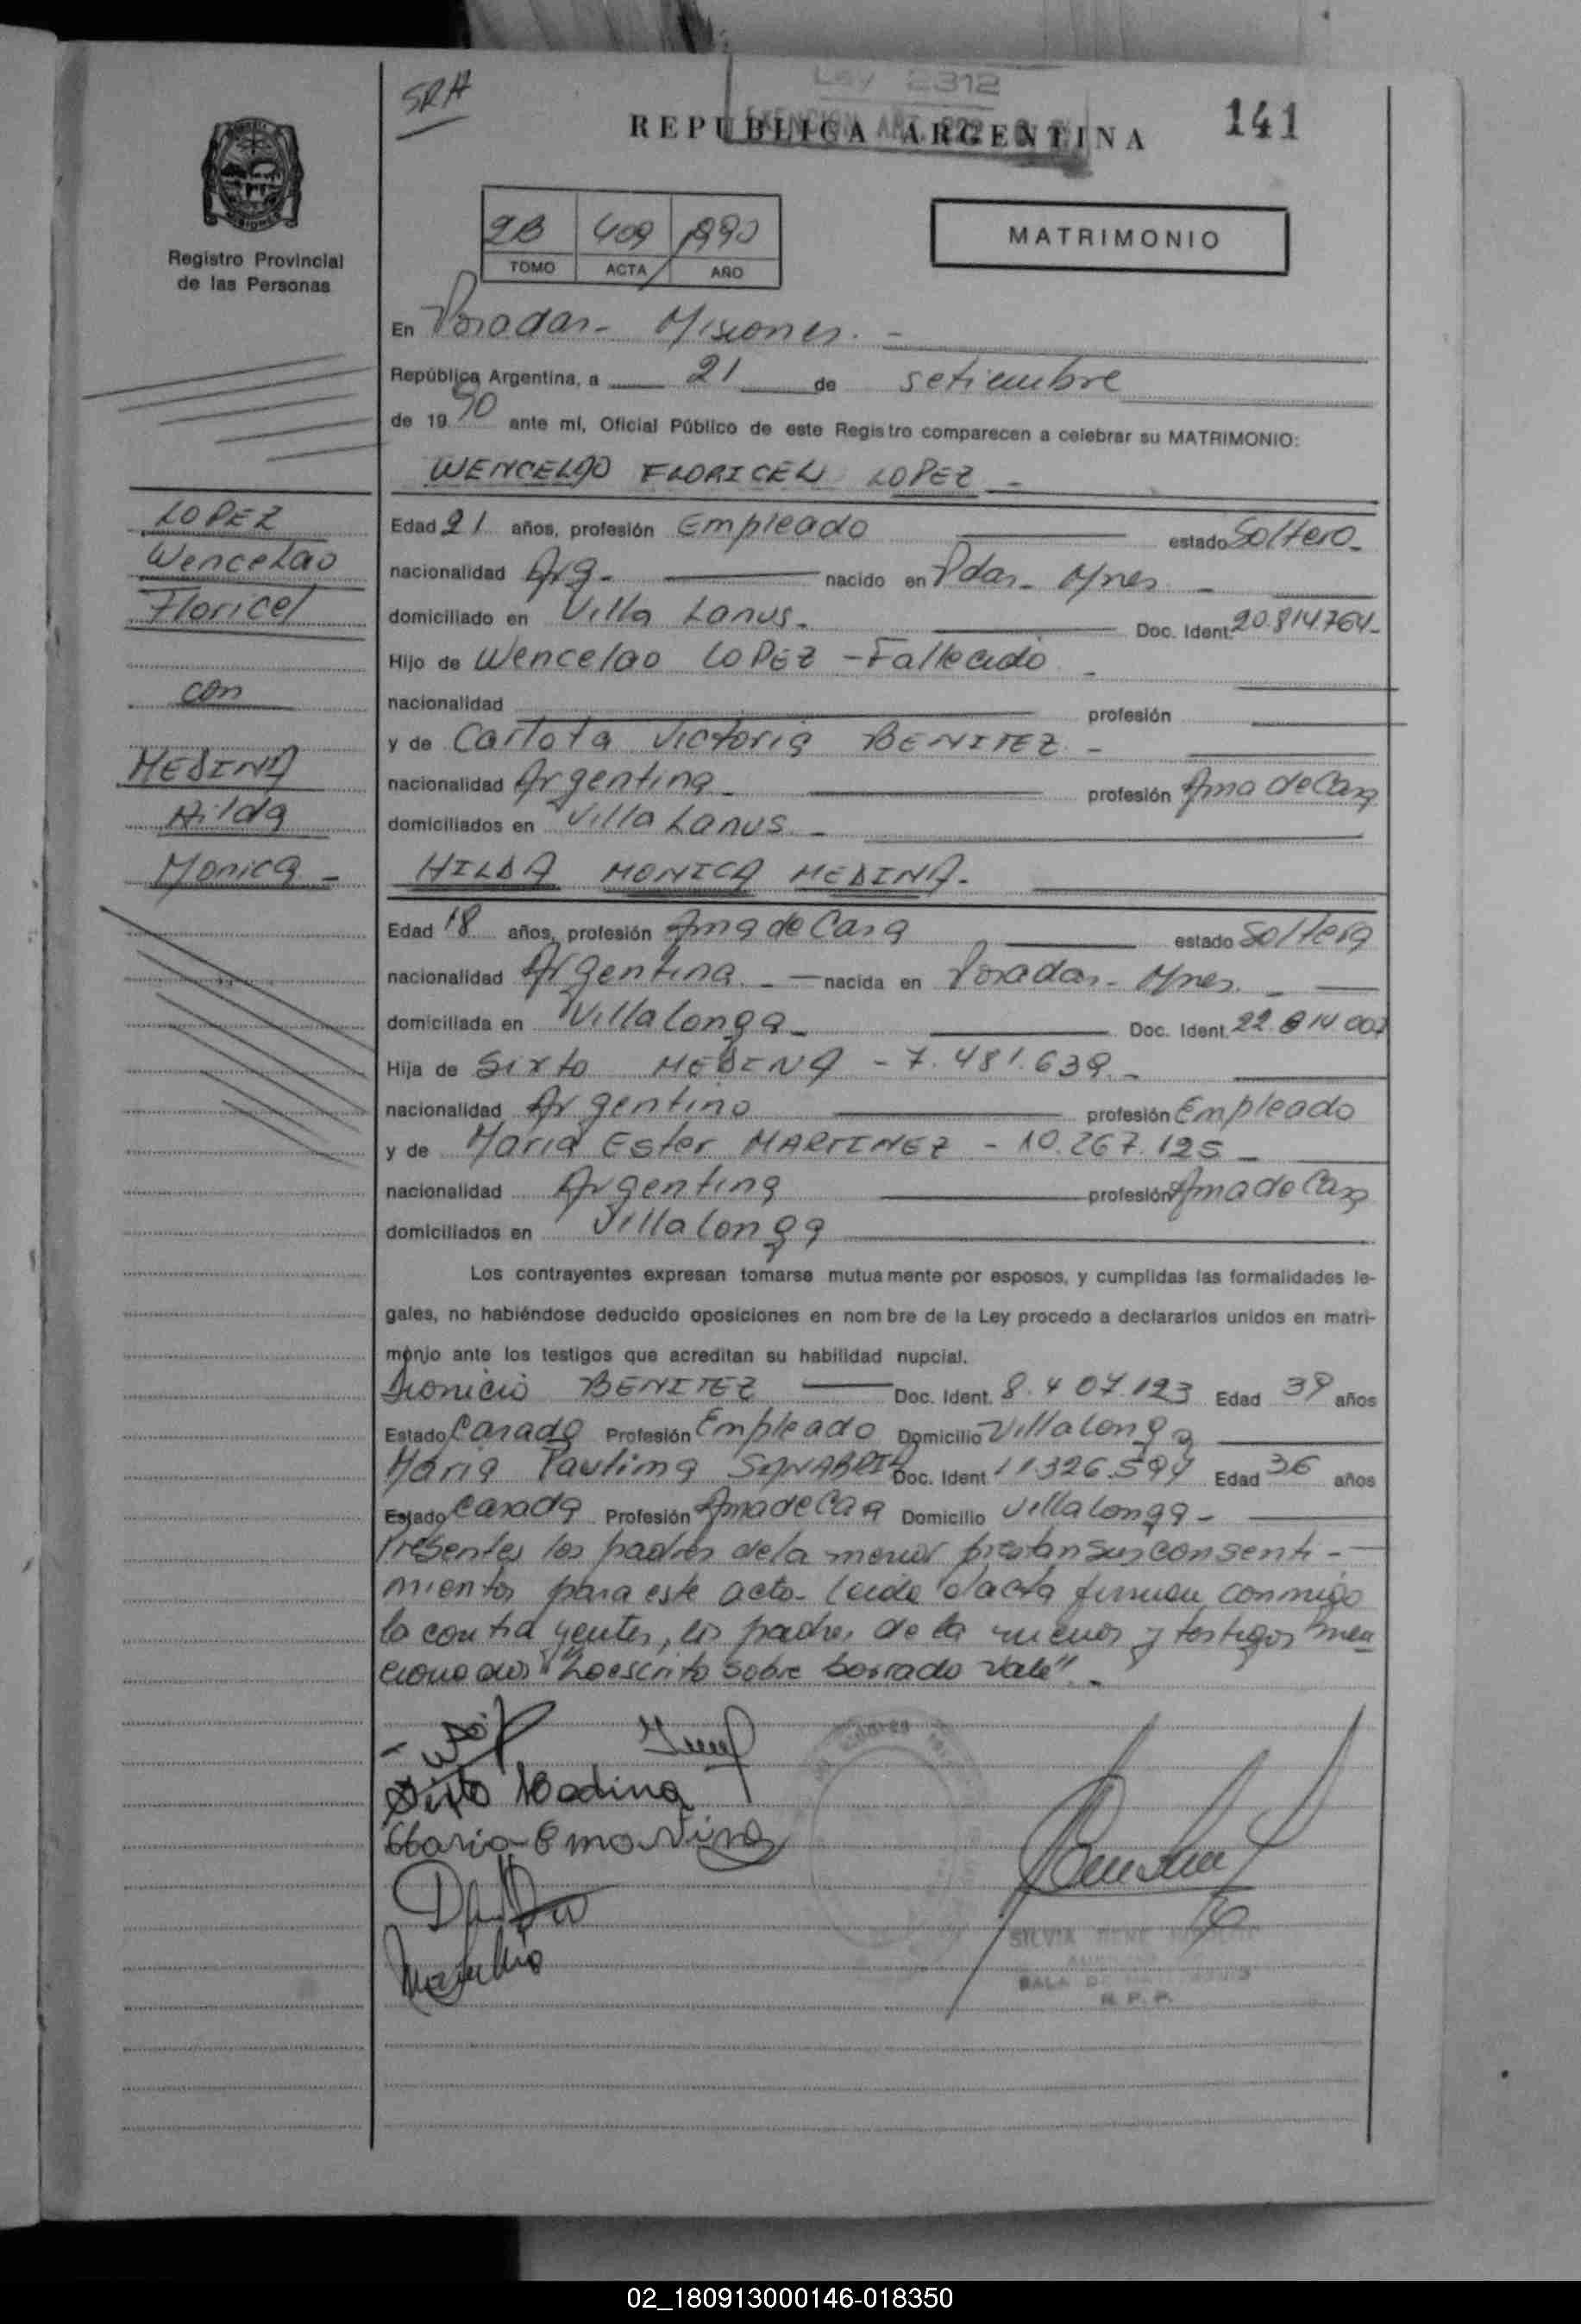 SRA
Ley 2312
REPUBLICA ARGENTINA
141
2B 409 1990
TOMO ACTA AÑO
MATRIMONIO
Registro Provincial
de las Personas
En Posadas - Misiones. -
República Argentina, a 21 de setiembre
de 1990 ante mí, Oficial Público de este Registro comparecen a celebrar su MATRIMONIO:
WENCELAO FLORICEL LOPEZ -
LOPEZ
Wencelao
Floricel
con
MEDINA
Hilda
Monica -
Edad 21 años, profesión Empleado estado Soltero -
nacionalidad Arg - nacido en Pdas - Mnes -
domiciliado en Villa Lanus - Doc. Ident. 20.814.764 -
Hijo de Wencelao LOPEZ - Fallecido -
nacionalidad profesión
y de Carlota Victoria BENITEZ -
nacionalidad Argentina - profesión Ama de Casa
domiciliados en Villa Lanus -
HILDA MONICA MEDINA -
Edad 18 años, profesión Ama de Casa estado Soltera
nacionalidad Argentina. - nacida en Posadas - Mnes. -
domiciliada en Villalonga - Doc. Ident. 22.814.007
Hija de Sixto MEDINA - 7.481.639 -
nacionalidad Argentino profesión Empleado
y de Maria Ester MARTINEZ - 10.267.125 -
nacionalidad Argentina profesión Ama de Casa
domiciliados en Villalonga
Los contrayentes expresan tomarse mutuamente por esposos, y cumplidas las formalidades le-
gales, no habiéndose deducido oposiciones en nombre de la Ley procedo a declararlos unidos en matri-
monio ante los testigos que acreditan su habilidad nupcial.
Dionicio BENITEZ Doc. Ident. 8.407.123 Edad 39 años
Estado Casado Profesión Empleado Domicilio Villalonga
Maria Paulima SANABRIA Doc. Ident 11326.594 Edad 36 años
Estado Casada Profesión Ama de Casa Domicilio Villalonga -
Presentes los padres de la menor prestan sus consenti -
mientos para este acto - Leida el acta firman conmigo
lo contrayentes, los padres de la menor y testigos men
cionados "Lo escrito sobre borrado vale" -
Sixto Medina
Maria E martinez
SILVIA RENE
SALA DE
R. P. P.
02_180913000146-018350